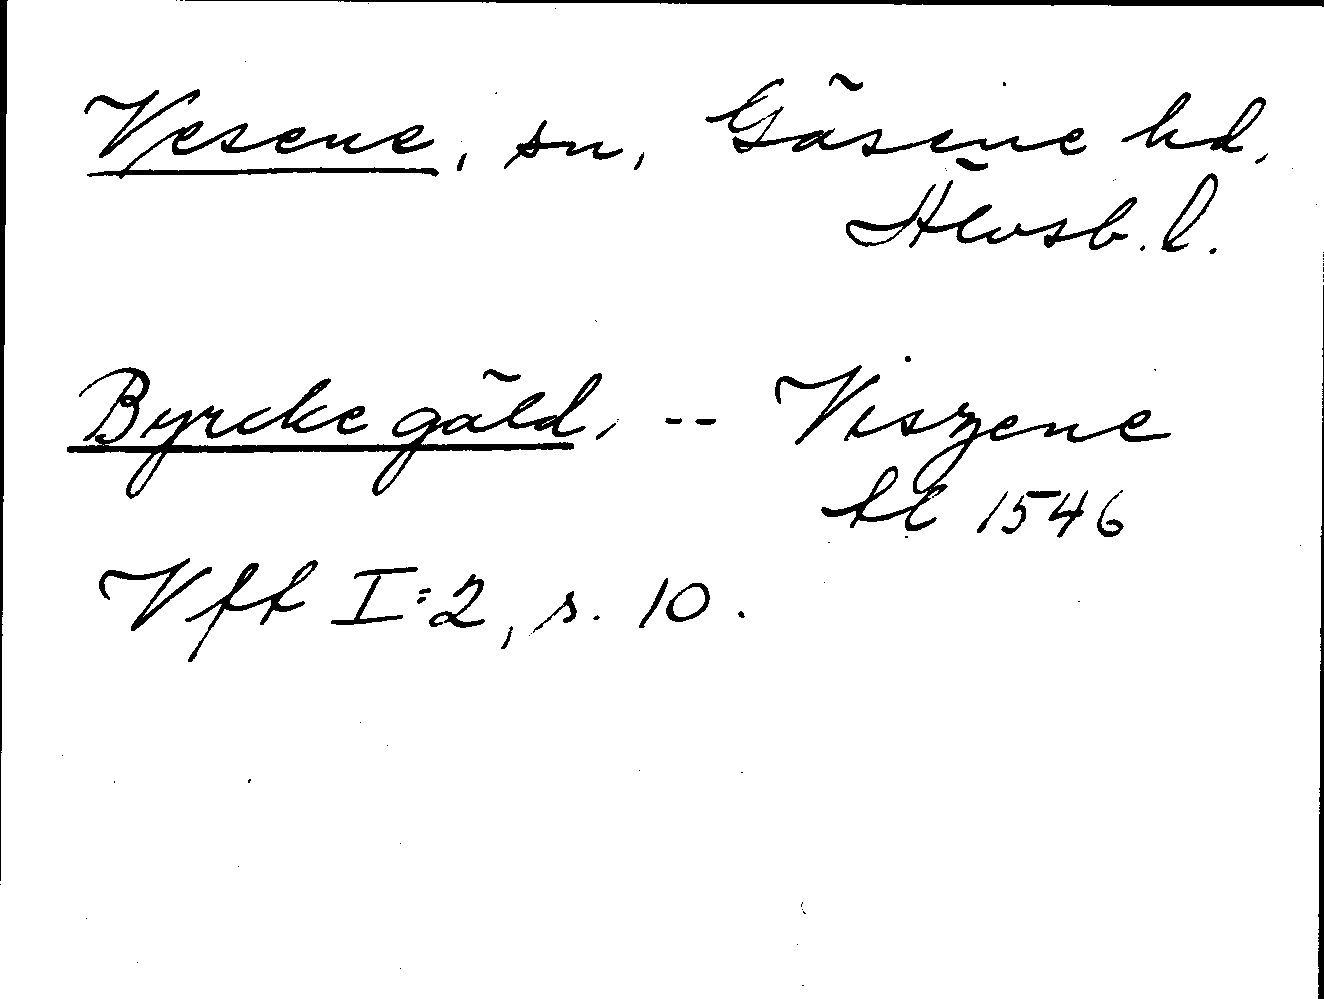 Vesene, sn, Gäsene hd,
Älvsb. l.
Byrcke gäld, -- Viszene
kl 1546
Vff I:2, s. 10.